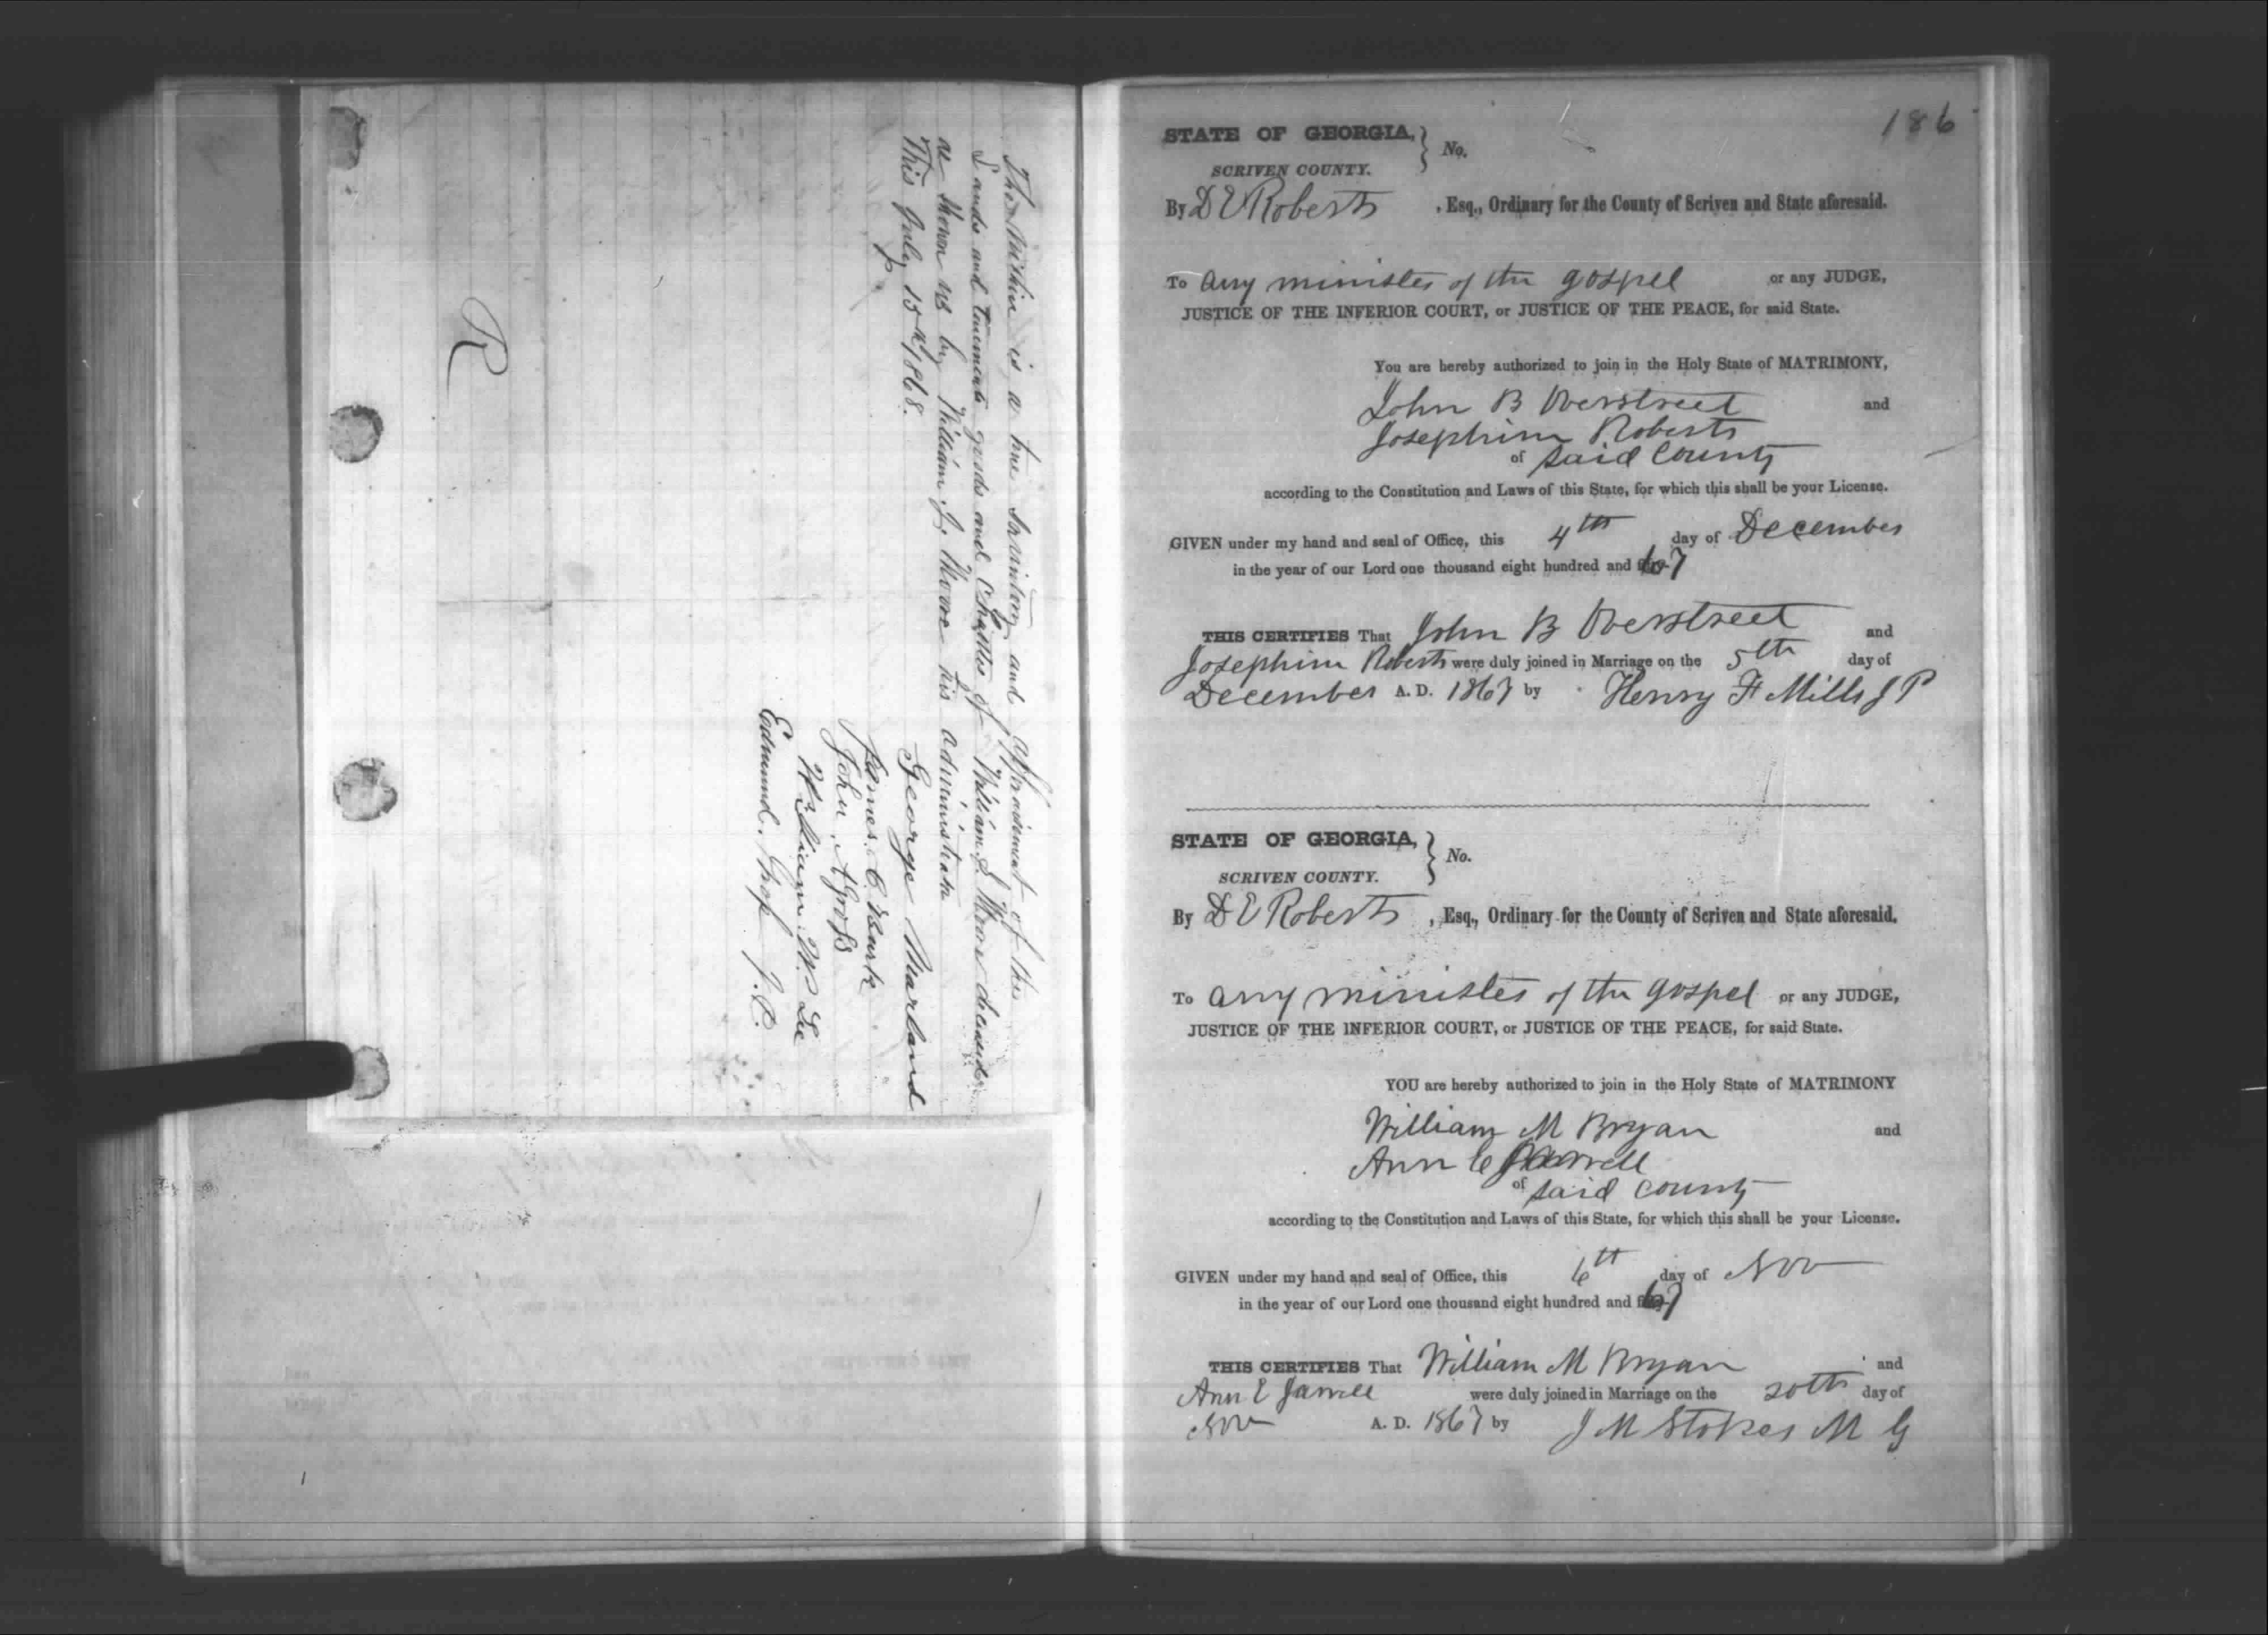 The within is a true Inventory and Appraisement of the
Lands and tenements goods and Chattles of William S. Moore deceased
as shown us by William J. Moore his administrator
This July 15th 1868.
George Marland
James C Burke
John A Groſs
William W. Lee
Edmund. Groſs J. P.
R
186
STATE OF GEORGIA, } No.
SCRIVEN COUNTY.
By D E Roberts , Esq., Ordinary for the County of Scriven and State aforesaid.
To any minister of the gospel or any JUDGE,
JUSTICE OF THE INFERIOR COURT, or JUSTICE OF THE PEACE, for said State.
You are hereby authorized to join in the Holy State of MATRIMONY,
John B Overstreet and
Josephine Roberts
of said County
according to the Constitution and Laws of this State, for which this shall be your License.
GIVEN under my hand and seal of Office, this 4th day of December
in the year of our Lord one thousand eight hundred and 67
THIS CERTIFIES That John B Overstreet and
Josephine Roberts were duly joined in Marriage on the 5th day of
December A. D. 1867 by Henry F Mills J P
STATE OF GEORGIA, } No.
SCRIVEN COUNTY.
By D E Roberts , Esq., Ordinary for the County of Scriven and State aforesaid.
To any minister of the gospel or any JUDGE,
JUSTICE OF THE INFERIOR COURT, or JUSTICE OF THE PEACE, for said State.
YOU are hereby authorized to join in the Holy State of MATRIMONY
William M Bryan and
Ann E Jarrell
of said county
according to the Constitution and Laws of this State, for which this shall be your License.
GIVEN under my hand and seal of Office, this 6th day of Nov
in the year of our Lord one thousand eight hundred and 67
THIS CERTIFIES That William M Bryan and
Ann E Jarrell were duly joined in Marriage on the 20th day of
Nov A. D. 1867 by J M Stokes M G